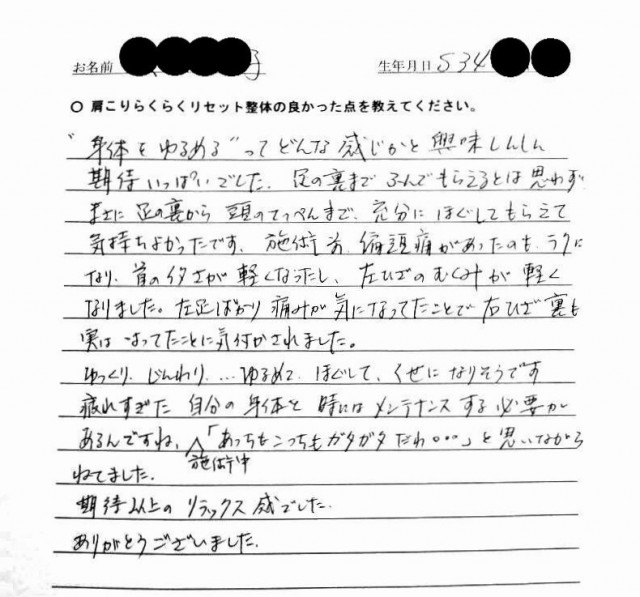 お名前 子 生年月日 S34
○ 肩こりらくらくリセット整体の良かった点を教えてください。
"身体をゆるめる"ってどんな感じかと興味しんしん
期待いっぱいでした。足の裏まで ふんでもらえるとは思わず
まさに足の裏から頭のてっぺんまで、充分にほぐしてもらえて
気持ちよかったです。施術前、偏頭痛があったのも、ラクに
なり、首の付さが軽くなったし、左ひざのむくみが軽く
なりました。左足ばかり痛みが気になってたことで右ひざ裏も
実は はってたことに気付かされました。
ゆっくり、じんわり、…ゆるめて、ほぐして、くせになりそうです
疲れすぎた自分の身体を時にはメンテナンスする必要が
あるんですね、「あっちもこっちもガタガタだわ。。。」と思いながら
施術中
ねてました。
期待以上のリラックス感でした。
ありがとうございました。